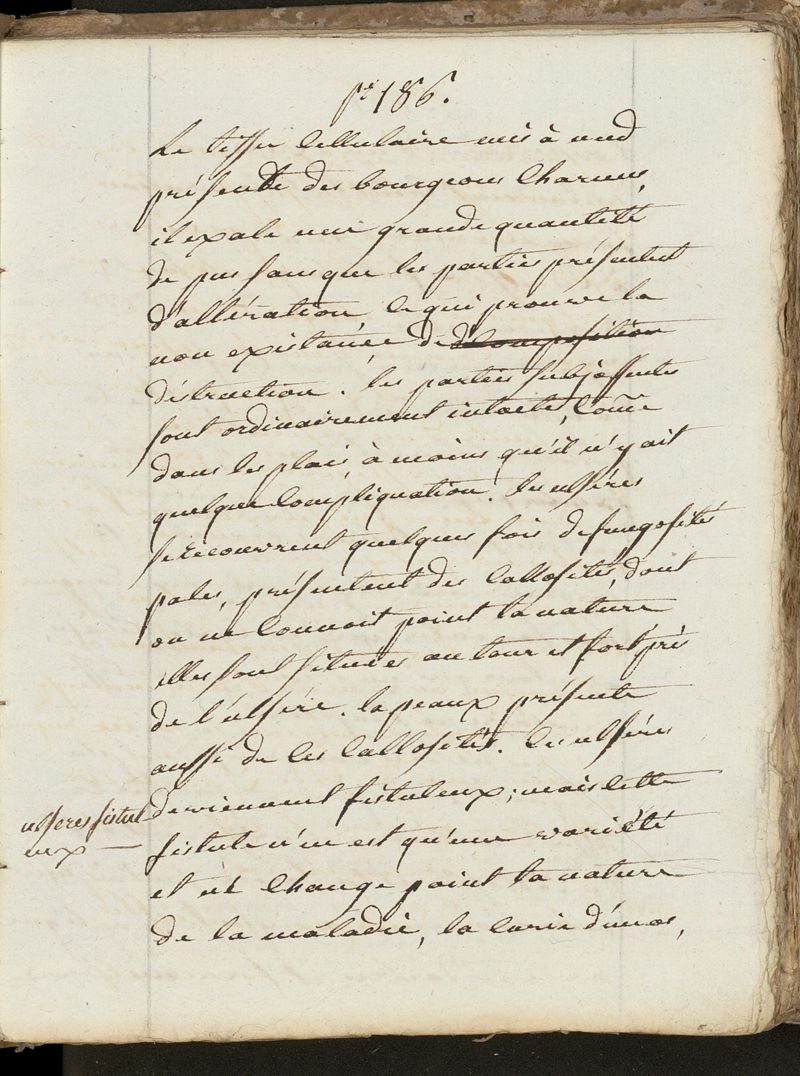 pe 186.
Le tissu cellulaire mis à nud
présente des bourgeons charnus,
il exale une grande quantité
de pus sans que les parties présentent
d'altération ce qui prouve la
non existance de decomposition
destruction. les parties subjassentes
sont ordinairement intactes, come
dans les plais à moins qu'il n'y ait
quelque compliquation. les ulseres
se recouvrent quelques fois de fungosités
pales, présentent des callosités, dont
on ne connoit point la nature
elles sont situées autour et fort près
de l'ulsére. la peaux présente
aussi de ces callosités. les ulséres
deviennent fistuleux; mais cette
fistule n'en est qu'une variété
et ne change point la nature
de la maladie, la carie d'un os,
ulseres fistul
eux